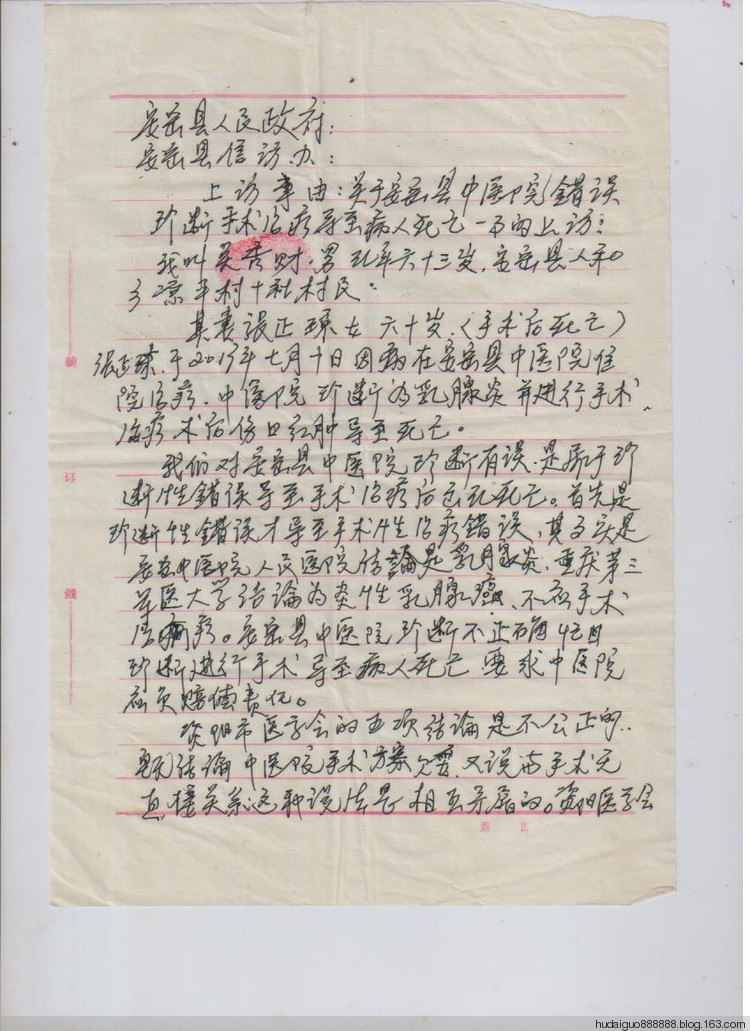 安岳县人民政府:
安岳县信访办:
上访事由:关于安岳县中医院错误
珍断手术治疗导至病人死亡一事的上访:
我叫吴 财.男 六十三岁.安岳县人和
乡凉平村十社村民.
其妻張正珠女六十岁.(手术后死亡)
張正珠.于2013年七月十日因病在安岳县中医院住
院治疗.中医院珍断为乳腺炎并进行手术
治疗术后伤口红肿导至死亡。
我们对安岳县中医院珍断有误.是属于珍
断性錯误导至手术治疗后 死亡。首先是
珍断性錯误才导至手术性治疗錯误,其事实是
安岳中医院人民医院结論是乳腺炎.重庆第三
军医大学结论为炎性乳腺癌.不应手术
治疗。安岳县中医院珍断不正确 目
珍断进行手术导至病人死亡要求中医院
应负賠偿责任。
资阳市医学会的五项结論是不公正的.
既结論中医院手术方案欠妥.又说与手术无
直接关系这种说法是相互矛盾的。资阳医学会
装
订
綫
hudaiguo888888.blog.163.com